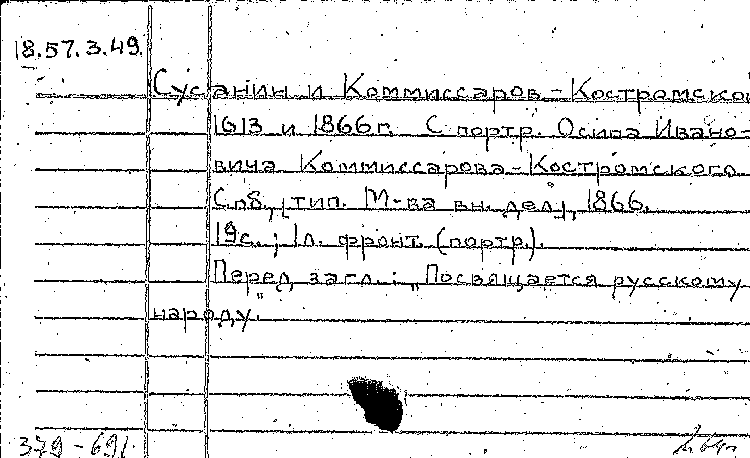 18.57.3.49.
Сусанин и Коммиссаров-Костромской
1613 и 1866 г. С портр. Осипа Ивано-
вича Коммиссарова-Костромского.
Спб., [тип. М-ва вн. дел], 1866.
19 с.; 1 л. фронт. (портр.).
Перед загл.: „Посвящается русскому
народу."
379-691